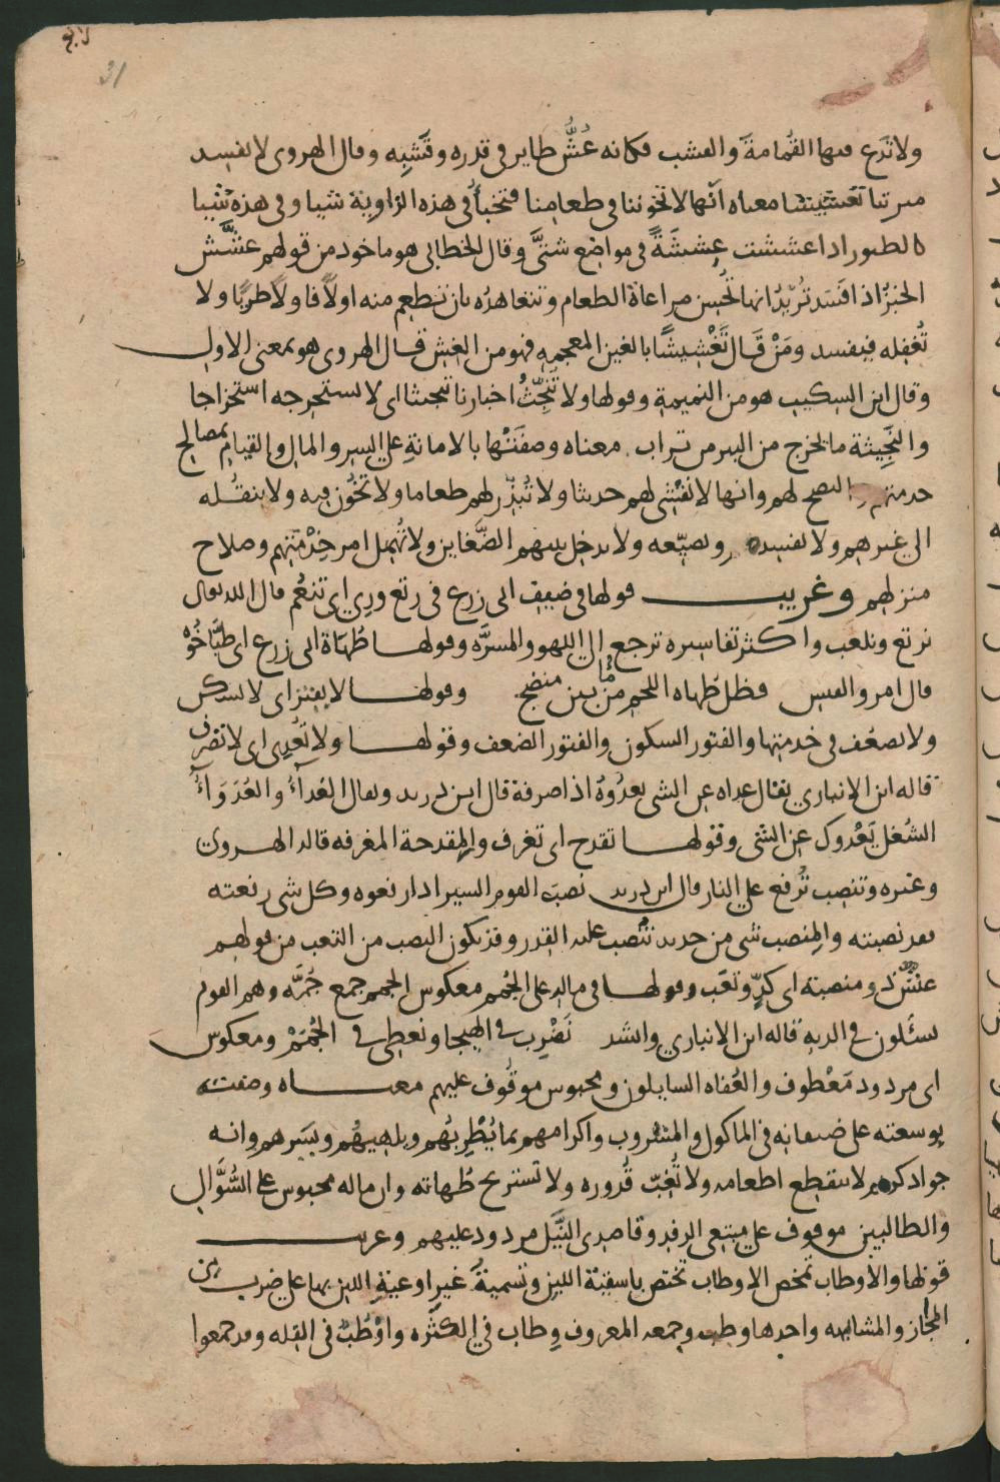 31
ولا تدع فيها القُمامةَ والعشب فكانه عُشُّ طاير في قذره وقَشَبِه وقال الهروي لا تفسد
ميرتنا تعشيشا معناه انّها لا تخوننا في طعامنا فتخبأُ في هذه الزاوية شيا وفي هذه شيا
كالطيور اذا عششت عِششَةً في مواضع شتىَّ وقال الخطابي هو ماخوذ من قولهم عشَّش
الخبزُ اذا فسَد تُريدُ انها تُحسن مراعاة الطعام وتتعاهدُه بان تطعم منه اولاً فاولاً طريًا ولا
تُغفِله فيفسد ومَنْ قَال تَغْشيشًا بالغين المعجمه فهو من الغش قال الهروي هو بمعنى الاول
وقال ابن السكيت هو من النميمة وقولها ولا تنجّثُ اخبارنا تنجيثا اى لا تستخرجه استخراجا
والنَّجِيثة ما يخرج من البير من تراب معناه وصفَتْها بالامانةِ على السر والمال والقيام بمصالح
خدمتهم النصح لهم وانها لا تفشى لهم حديثا ولا تُبذّر لهم طعاما ولا تخُون فيه ولا ينقُله
الى غيرهم ولا تفسده وتضيّعه ولا تدخل بينهم الضَّغاين ولا تُهمل امر خِدْمَتِهم وصلاح
منزلهم وغريب قولها في ضيف ابى زرع في رتع ورِي اى تنعُم قال الله تعالى
نرتع ونلعب واكثر تفاسيره ترجع الى اللهو والمسرَّه وقولها طُهَاة ابى زرع اى طبَّاخُوْه
قال امرو القيس فظل طُهاه اللحم من بين منضج وقولها لا يفتر اى لا تسكن
ولا تضعُف في خدمتها والفتور السكون والفتور الضعف وقولها ولا تُعدى اى لا تصرف
قاله ابن الانباري يقال عداه عن الشى يعدُوهُ اذا صرفه قال ابن دريد ويقال العُدآءُ والعُدَوَآءُ
الشُغل يَعْدُوك عن الشى وقولها تقدح اى تغرف والمِقدحة المغرفه قاله الهروى
وغيره وتنصب تُرفع على النار قال ابن دريد نصبَ القوم السير اذا رفعوه وكل شى رفعته
فقد نصبته والمنصب شى من حديد تُنصب عليه القدر وقد يكون النصب من التعب من قولهم
عيشٌ ذو منصبته اى كدٍّ وتعَب وقولها في ماله على الجُمم معكوس الجمم جمع جُمَّه وهم القوم
يسئَلون في الدية قاله ابن الانباري وانشد نَضْرِب في الهيجا ونعطى في الجُمَمْ ومعكوس
اى مردود مَعْطوف والعُفاه السايلون ومحبوس موقُوف عليهم معناه وصفته
بوسعته على ضيفانه في الماكول والمشروب واكرامهم بما يُطْرِبُهم ويلهيهُم ويسَرهم وانه
جواد كريم لا ينقطع اطعامه ولا تُغِبّ قُدوره ولا تستريح طُهاته وان ماله محبوس على السُّوَّال
والطالبين موقوف على مبتغى الرفد وقاصدى النَّيْل مردود عليهم وغريب
قولها والاوطاب تمخض الاوطاب تختص باسقيَة اللبن وتسميةُ غيرِ اوعيَةِ اللبن بها على ضرب من
المجاز والمشابهه واحدها وطب وجمعه المعروف وِطاب في الكثره واوْطُبٌ في القله وقد جمعوا